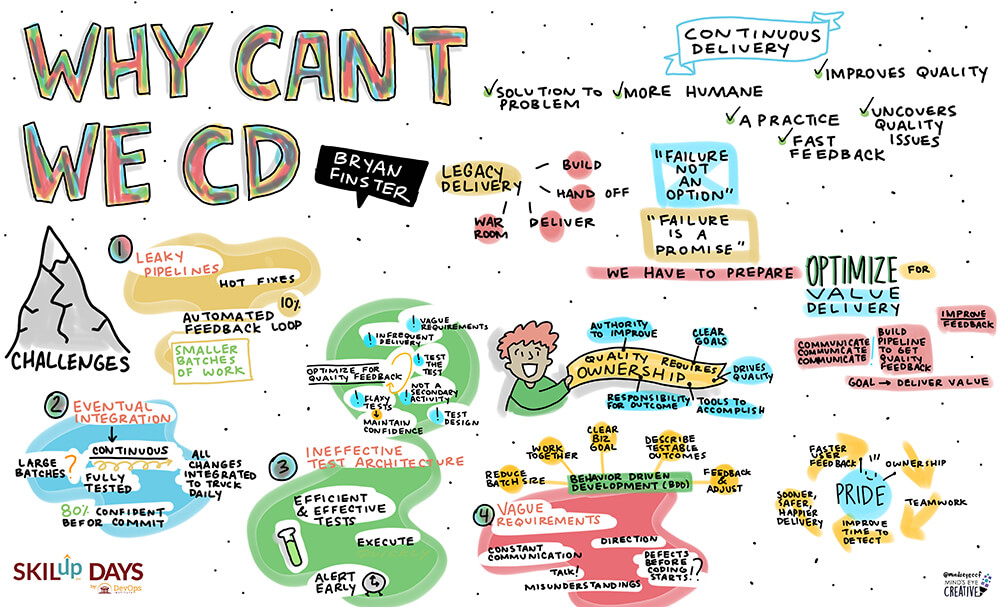 WHY CAN'T
WE CD
BRYAN
FINSTER
CONTINUOUS
DELIVERY
SOLUTION TO
PROBLEM
MORE HUMANE
IMPROVES QUALITY
A PRACTICE
FAST
FEEDBACK
UNCOVERS
QUALITY
ISSUES
LEGACY
DELIVERY
BUILD
HAND OFF
DELIVER
WAR
ROOM
"FAILURE
NOT
AN
OPTION"
"FAILURE
IS A
PROMISE"
WE HAVE TO PREPARE
OPTIMIZE FOR
VALUE
DELIVERY
COMMUNICATE
COMMUNICATE
COMMUNICATE
BUILD
PIPELINE
TO GET
QUALITY
FEEDBACK
IMPROVE
FEEDBACK
GOAL → DELIVER VALUE
CHALLENGES
1 LEAKY
PIPELINES
HOT FIXES
10%
AUTOMATED
FEEDBACK LOOP
SMALLER
BATCHES
OF WORK
2 EVENTUAL
INTEGRATION
CONTINUOUS
LARGE
BATCHES ?
FULLY
TESTED
ALL
CHANGES
INTEGRATED
TO TRUCK
DAILY
80% CONFIDENT
BEFOR COMMIT
! VAGUE
REQUIREMENTS
! INFREQUENT
DELIVERY
! TEST
THE
TEST
OPTIMIZE FOR
QUALITY FEEDBACK
! NOT A
SECONDARY
ACTIVITY
! FLAXY
TESTS
MAINTAIN
CONFIDENCE
! TEST
DESIGN
3 INEFFECTIVE
TEST ARCHITECTURE
EFFICIENT
& EFFECTIVE
TESTS
EXECUTE
ALERT
EARLY
AUTHORITY
TO IMPROVE
CLEAR
GOALS
QUALITY REQUIRES
OWNERSHIP
DRIVES
QUALITY
RESPONSIBILITY
FOR OUTCOME
TOOLS TO
ACCOMPLISH
REDUCE
BATCH SIZE
WORK
TOGETHER
CLEAR
BIZ
GOAL
DESCRIBE
TESTABLE
OUTCOMES
FEEDBACK
&
ADJUST
BEHAVIOR DRIVEN
DEVELOPMENT (BDD)
4 VAGUE
REQUIREMENTS
CONSTANT
COMMUNICATION
DIRECTION
TALK!
MISUNDERSTANDINGS
DEFECTS
BEFORE
CODING
STARTS!?
FASTER
USER
FEEDBACK
OWNERSHIP
PRIDE
TEAMWORK
SOONER,
SAFER,
HAPPIER
DELIVERY
IMPROVE
TIME TO
DETECT
SKILup DAYS
by DevOps
MIND'S EYE
CREATIVE